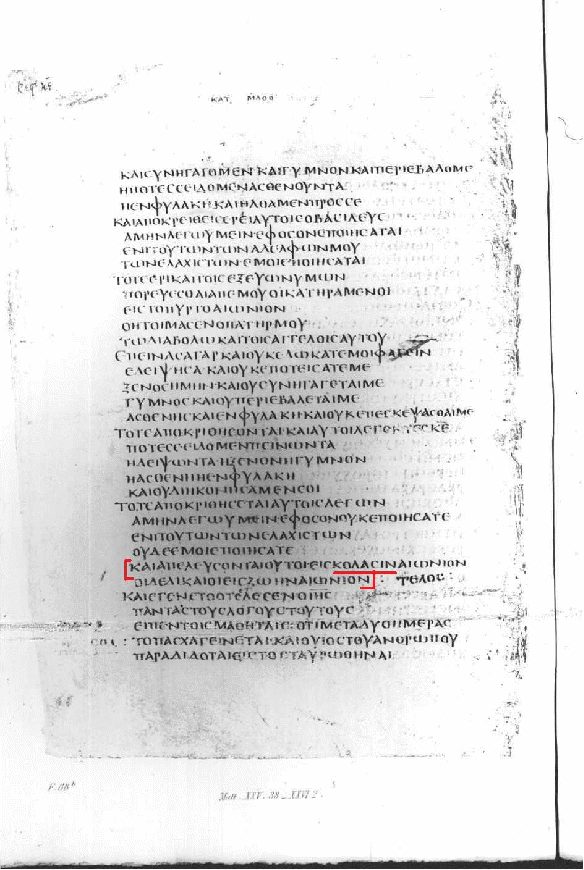 ΚΑΤ ΜΑΘΘ
ΚΑΙΣΥΝΗΓΑΓΟΜΕΝ ΚΑΙΓΥΜΝΟΝΚΑΙΠΕΡΙΕΒΑΛΟΜΕ
ΗΠΟΤΕΣΕΕΙΔΟΜΕΝΑΣΘΕΝΟΥΝΤΑ
ΗΕΝΦΥΛΑΚΗ ΚΑΙΗΛΘΑΜΕΝΠΡΟΣΣΕ
ΚΑΙΑΠΟΚΡΕΙΘΕΙΣΕΡΕΙΑΥΤΟΙΣΟΒΑΣΙΛΕΥΣ
ΑΜΗΝΛΕΓΩΥΜΕΙΝΕΦΟΣΟΝΕΠΟΙΗΣΑΤΑΙ
ΕΝΙΤΟΥΤΩΝΤΩΝΑΔΕΛΦΩΝΜΟΥ
ΤΩΝΕΛΑΧΙΣΤΩΝΕΜΟΙΕΠΟΙΗΣΑΤΑΙ
ΤΟΤΕΕΡΙΚΑΙΤΟΙΣΕΞΕΥΩΝΥΜΩΝ
ΠΟΡΕΥΕΣΘΑΙΑΠΕΜΟΥΟΙΚΑΤΗΡΑΜΕΝΟΙ
ΕΙΣΤΟΠΥΡΤΟΑΙΩΝΙΟΝ
ΟΗΤΟΙΜΑΣΕΝΟΠΑΤΗΡΜΟΥ
ΤΩΔΙΑΒΟΛΩΚΑΙΤΟΙΣΑΓΓΕΛΟΙΣΑΥΤΟΥ
ΕΠΕΙΝΑΣΑΓΑΡΚΑΙΟΥΚΕΔΩΚΑΤΕΜΟΙΦΑΓΕΙΝ
ΕΔΕΙΨΗΣΑΚΑΙΟΥΚΕΠΟΤΕΙΣΑΤΕΜΕ
ΞΕΝΟΣΗΜΗΝΚΑΙΟΥΣΥΝΗΓΑΓΕΤΑΙΜΕ
ΓΥΜΝΟΣΚΑΙΟΥΠΕΡΙΕΒΑΛΕΤΑΙΜΕ
ΑΣΘΕΝΗΣΚΑΙΕΝΦΥΛΑΚΗΚΑΙΟΥΚΕΠΕΣΚΕΨΑΣΘΑΙΜΕ
ΤΟΤΕΑΠΟΚΡΙΘΗΣΟΝΤΑΙΚΑΙΑΥΤΟΙΛΕΓΟΝΤΕΣΚΕ
ΠΟΤΕΣΕΕΙΔΟΜΕΝΠΕΙΝΩΝΤΑ
ΗΔΕΙΨΩΝΤΑΗΞΕΝΟΝΗΓΥΜΝΟΝ
ΗΑΣΘΕΝΗΗΕΝΦΥΛΑΚΗ
ΚΑΙΟΥΔΙΗΚΟΝΗΣΑΜΕΝΣΟΙ
ΤΟΤΕΑΠΟΚΡΙΘΗΣΕΤΑΙΑΥΤΟΙΣΛΕΓΩΝ
ΑΜΗΝΛΕΓΩΥΜΕΙΝΕΦΟΣΟΝΟΥΚΕΠΟΙΗΣΑΤΕ
ΕΝΙΤΟΥΤΩΝΤΩΝΕΛΑΧΙΣΤΩΝ
ΟΥΔΕΕΜΟΙΕΠΟΙΗΣΑΤΕ
ΚΑΙΑΠΕΛΕΥΣΟΝΤΑΙΟΥΤΟΙΕΙΣΚΟΛΑΣΙΝΑΙΩΝΙΟΝ
ΟΙΔΕΔΙΚΑΙΟΙΕΙΣΖΩΗΝΑΙΩΝΙΟΝ : ΤΕΛΟΣ :
ΚΑΙΕΓΕΝΕΤΟΟΤΕΕΤΕΛΕΣΕΝΟΙΗΣ
ΠΑΝΤΑΣΤΟΥΣΛΟΓΟΥΣΤΟΥΤΟΥΣ
ΕΙΠΕΝΤΟΙΣΜΑΘΗΤΑΙΣ:ΟΤΙΜΕΤΑΔΥΟΗΜΕΡΑΣ
ΤΟΠΑΣΧΑΓΕΙΝΕΤΑΙ:ΚΑΙΟΥΙΟΣΤΟΥΑΝΘΡΩΠΟΥ
ΠΑΡΑΔΙΔΟΤΑΙΕΙΣΤΟΣΤΑΥΡΩΘΗΝΑΙ
F. 88b
Mat. XXV. 38 _ XXVI 2.